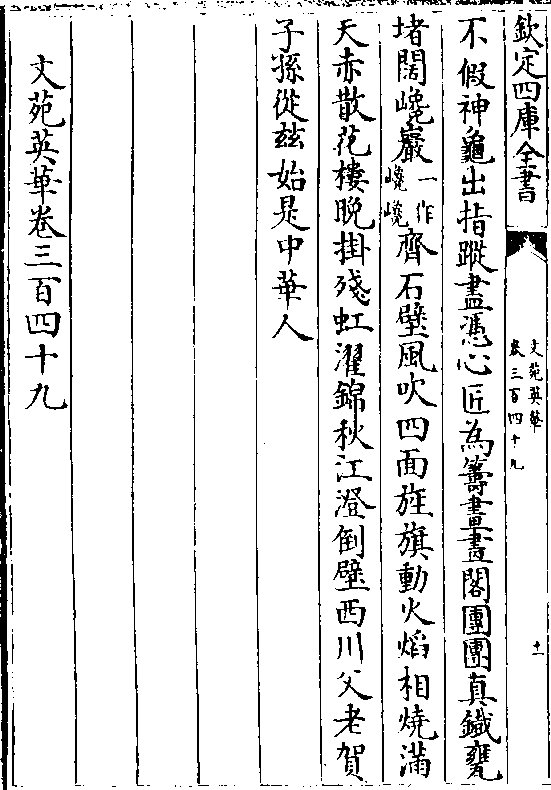 欽定四庫全書
文苑英華
卷三百四十九
十一
不假神龜出指蹤盡憑心匠為籌畫畫閣團團真鐵甕
堵闊巉巖一作巉巉齊石壁風吹四面旌旗動火焰相燒滿
天赤散花樓晚掛殘虹濯錦秋江澄倒壁西川父老賀
子孫從兹始是中華人
文苑英華卷三百四十九